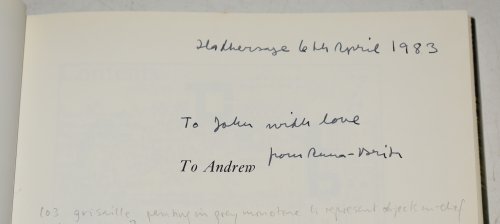 Hathersage 6th April 1983
To John with love
from Anna-Britt
To Andrew
103 grisaille, painting in grey monotone to represent objects in relief